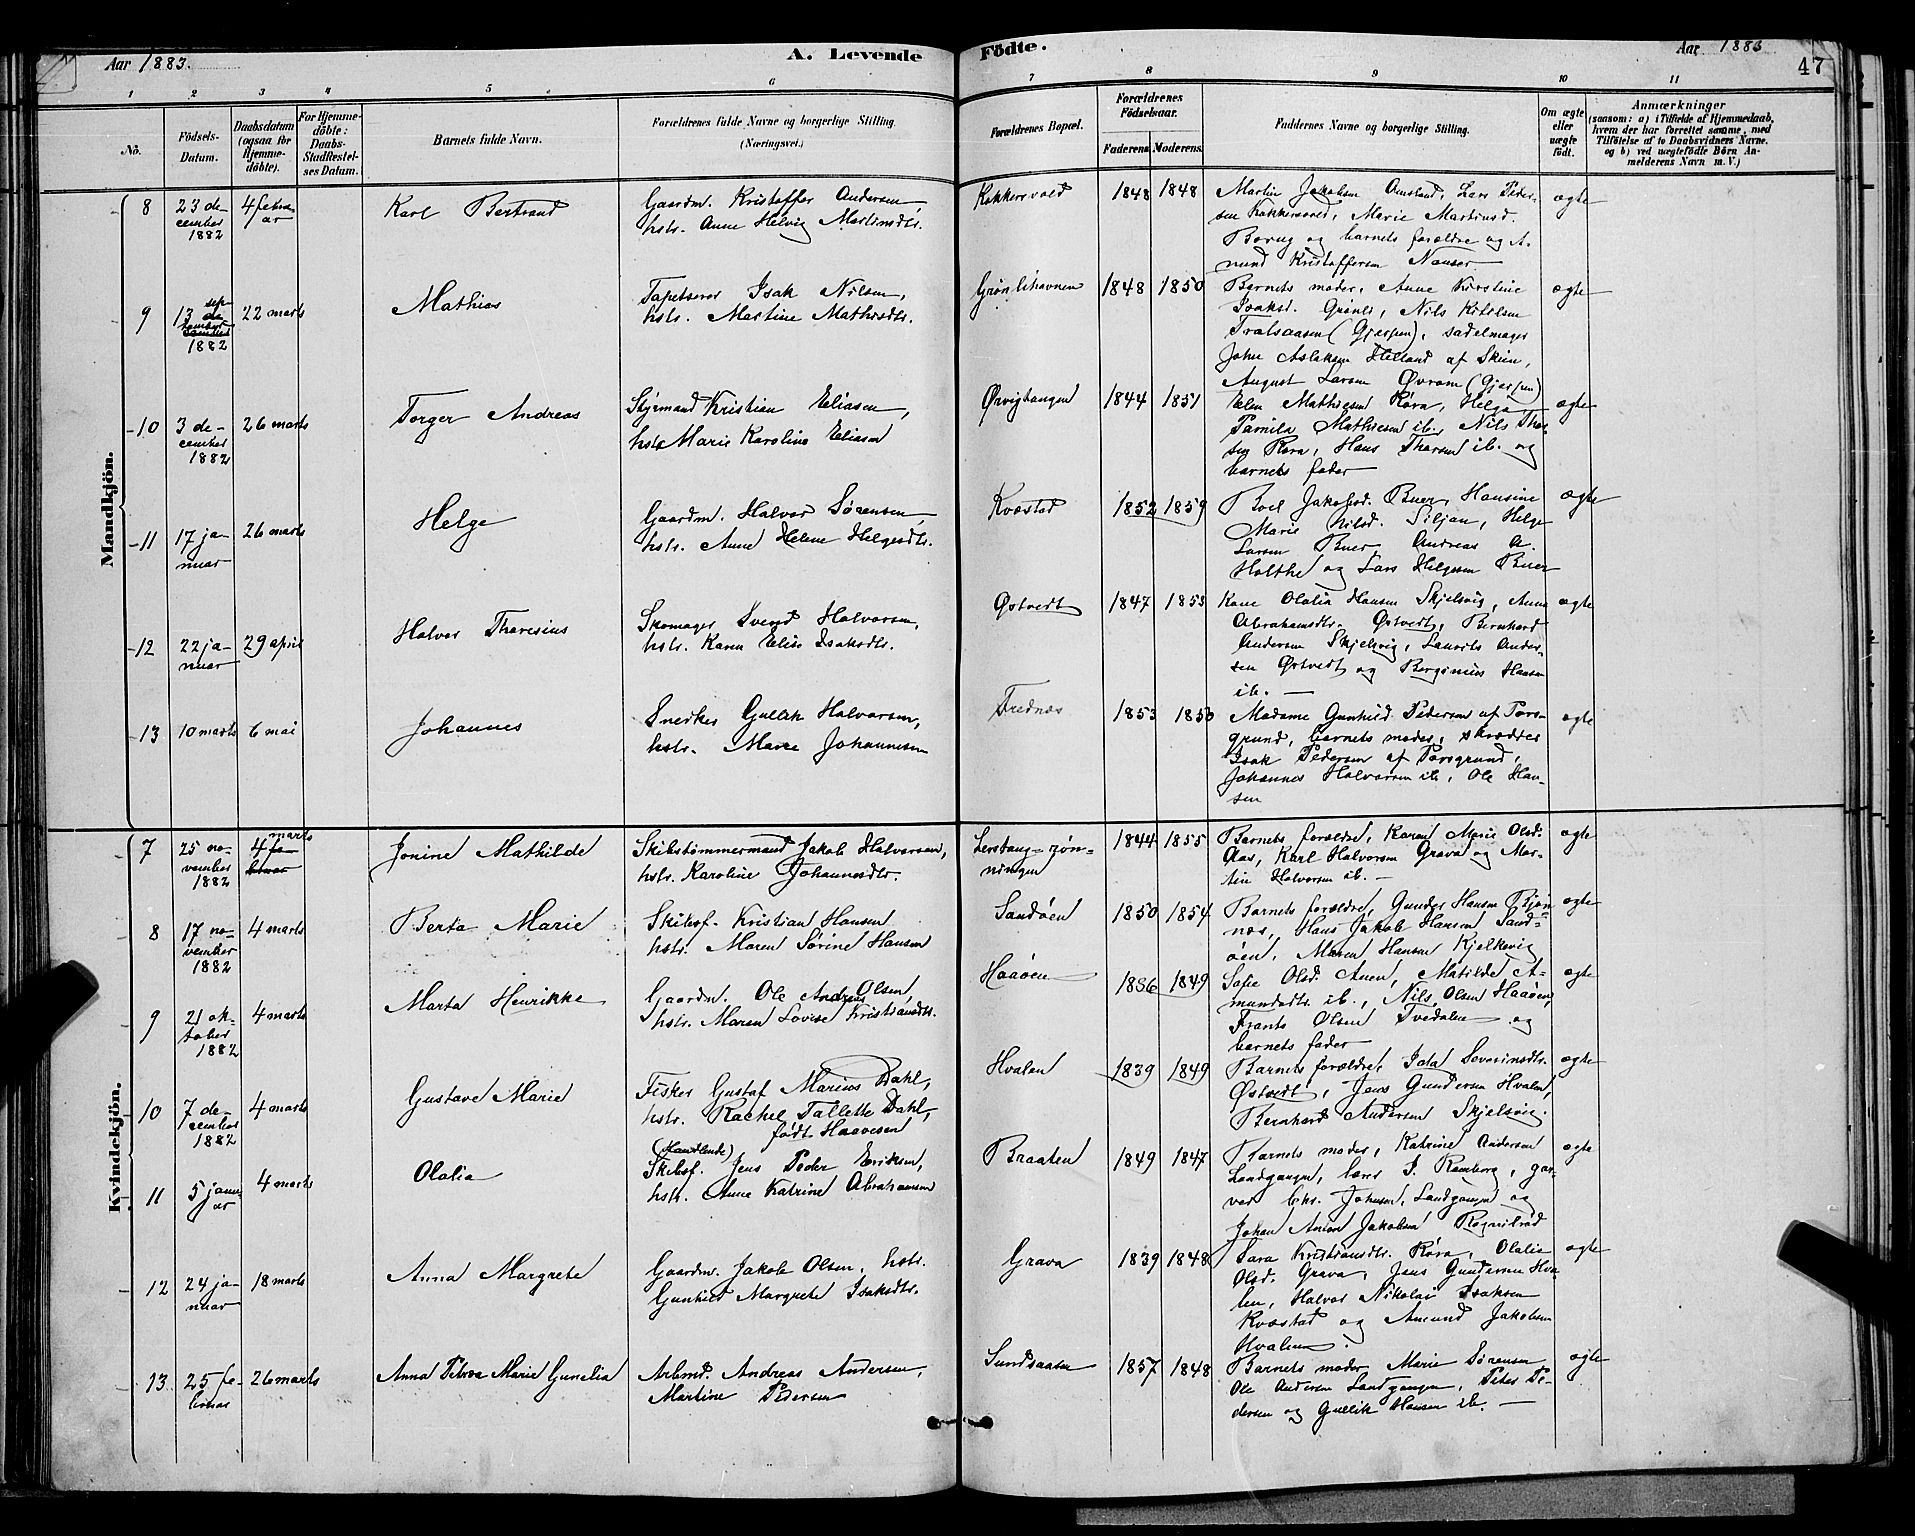 Aar 1883.
A. Levende
Födte.
Aar 1883
47
1 2 3 4 5 6 7 8 9 10 11
No.
Födsels-Datum.
Daabsdatum (ogsaa for Hjemmedöbte).
For Hjemmedöbte: Daabs-Stadfæstelses Datum.
Barnets fulde Navn.
Forældrenes fulde Navne og borgerlige Stilling.
(Næringsvei.)
Forældrenes Bopæl.
Forældrenes Födselsaar.
Faderens. Moderens.
Faddernes Navne og borgerlige Stilling.
Om ægte eller uægte födt.
Anmærkninger
(saasom: a) i Tilfælde af Hjemmedaab, hvem der har forrettet samme, med Tilföielse af to Daabsvidners Navne, og b) ved uægtefödte Börn Anmelderens Navn m. V.)
Mandkjön.
8
23 december 1882
4 februar
Karl Bertrand
Gaardm. Kristoffer Andersen,
hstr. Anne Helvig Martinsdtr.
Kokkersvold
1848 1848
Martin Jakobsen Aastad, Lars Peder-
sen Kokkersvold, Marie Martinsd.
Borug og barnets forældre og A-
mund Kristoffersen Nauser
ægte
9
13 september 1882
22 marts
Mathias
Tapetserer Isak Nilsen,
hstr. Martine Mathisdtr.
Grønlihavnen
1848 1850
Barnets moder, Anne Kirstine
Isaksd. Grønli, Nils Kittelsen
Tralsaasen (Gjerpen), sadelmager
John Aslaksen Hilland af Skien,
August Larsen Øvrom (Gjerpen)
ægte
10
3 december 1882
26 marts
Torger Andreas
Styrmand Kristian Eliasen,
hstr Maris Karoline Eliasen
Ørvigtangen
1844 1851
Elen Mathiesen Røra, Helga
Parnila Mathiesen ib., Nils Thor-
sen Røra, Hans Thorsen ib. og
barnets fader
ægte
11
17 januar
26 marts
Helge
Gaardm. Halvor Sørensen,
hstr. Anne Helene Helgesdtr.
Kvæstad
1852 1859
Boel Jakobsd. Buer, Hansine
Marie Nilsd. Siljan, Helge
Larsen Buer, Andreas A.
Holthe og Lars Helgesen Buer
ægte
12
22 januar
29 april
Halvor Theresius
Skomager Svend Halvorsen,
hstr. Karen Elise Isaksdtr.
Østvedt
1847 1853
Kone Olalia Hansen Skjelsvig, Anne
Abrahamsdtr. Østvedt, Bernhard
Andersen Skjelsvig, Laurits Ander-
sen Østvedt og Berginius Hansen
ib.
ægte
13
10 marts
6 mai
Johannes
Snedker Gullik Halvorsen,
hstr. Maree Johannesen
Frednæs
1853 1853
Madame Gunhild Pedersen af Pors-
grund, barnets moder, skrædder
Isak Pedersen af Porsgrund,
Johannes Halvorsen ib., Ole Han-
sen
ægte
Kvindekjön.
7
25 november 1882
4 marts
Jonine Mathilde
Skibstømmermand Jakob Halvorsen,
hstr. Karoline Johannesdtr.
Lerstang-rønningen
1844 1855
Barnets forældre, Karen Marie Olsd.
Aas, Karl Halvorsen Grava og Mar-
tin Halvorsen ib.
ægte
8
17 november 1882
4 marts
Berta Marie
Skibsf. Kristian Hansen
hstr. Maren Sørine Hansen
Sandøen
1850 1854
Barnets forældre, Gunder Hansen Bjøn-
næs, Hans Jakob Hansen Sand-
øen, Maren Hansen Kjelkevig
ægte
9
21 oktober 1882
4 marts
Marta Henrikke
Gaardm. Ole Andreas Olsen,
hstr. Maren Lovise Kristiansdtr.
Haaøen
1856 1849
Sofie Olsd. Auen, Matilde A-
mundsdtr. ib., Nils Olsen Haaøen,
Frants Olsen Tvedalen og
barnets fader
ægte
10
7 december 1882
4 marts
Gustave Marie
Fisker Gustaf Marius Dahl,
hstr. Rachel Tallette Dahl,
født Haavesen
Hvalen
1839 1849
Barnets forældre, Ida Severinsdtr.
Østvedt, Jens Gundersen Hvalen,
Bernhard Andersen Skjelsvig.
ægte
11
5 januar
4 marts
Olalia
(Handlende)
Skibsf. Jens Peder Eriksen,
hstr. Anne Katrine Abrahamsen
Braaten
1849 1847
Barnets moder, Katrine Andersen
Landgangen, lærer S. Ramberg, gar-
ver Chr. Johnsen, Landgangen og
Johan Anton Jakobsen Rognilrød
ægte
12
24 januar
18 marts
Anna Margrete
Gaardm. Jakob Olsen, hstr.
Gunhild Margrete Isaksdtr.
Grava
1839 1848
Sara Kristiansdtr. Røra, Olalia
Olsd. Grava, Jens Gundersen Hva-
len, Halvor Nikolai Isaksen
Kvæstad og Amund Jakobsen
Hvalen.
ægte
13
25 februar
26 marts
Anna Petrea Marie Gunelia
Arbmd. Andreas Andersen,
Martine Pedersen
Sundsaasen
1857 1848
Barnets moder, Marie Sørensen
Ole Andersen Landgangen, Peter Pe-
dersen og Gullik Hansen ib.
ægte